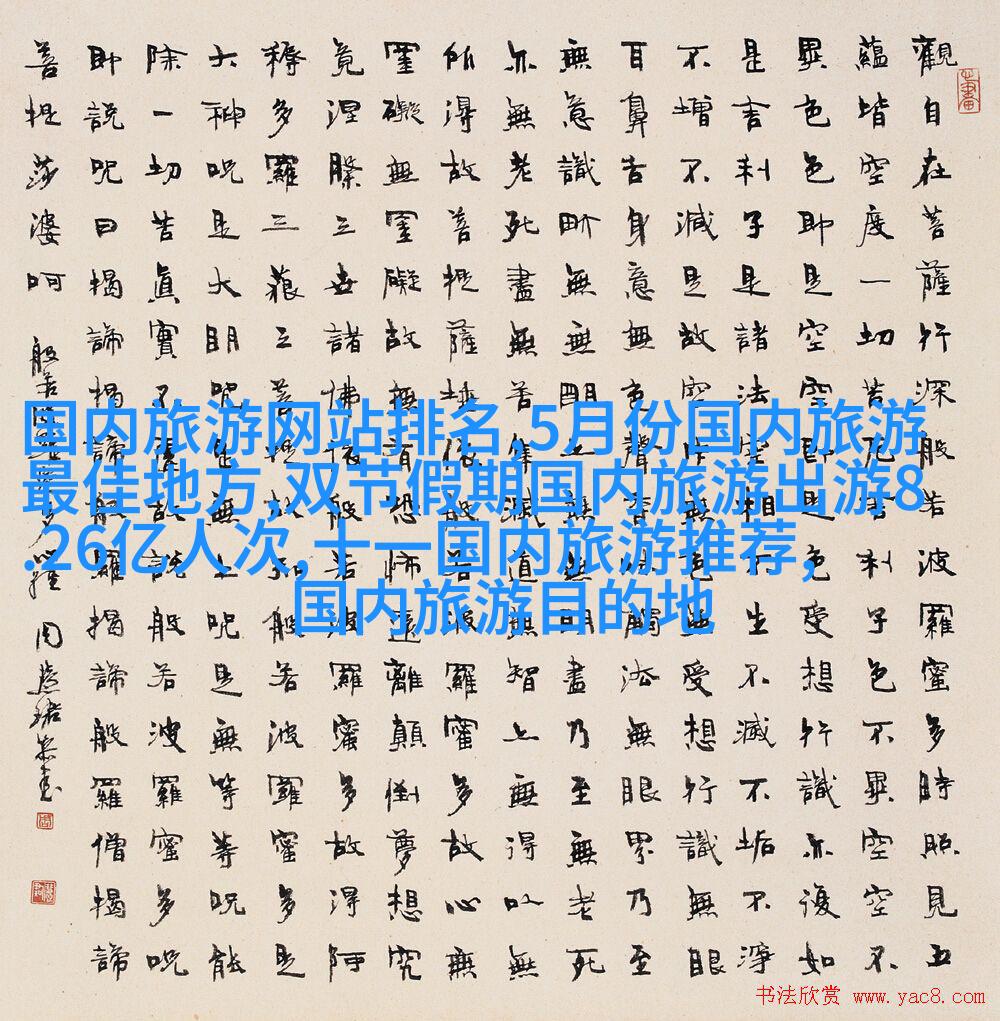 觀自在菩薩行深般若波羅蜜多時照見五
蘊皆空度一切苦厄舍利子色不異空空不
異色色即是空空即是色受想行識亦復如
是舍利子是諸法空相不生不滅不垢不淨
不增不減是故空中無色無受想行識無眼
耳鼻舌身意無色聲香味觸法無眼界乃至
無意識界無無明亦無無明盡乃至無老死
亦無老死盡無苦集滅道無智亦無得以無
所得故菩提薩埵依般若波羅蜜多故心無
罣礙無罣礙故無有恐怖遠離顛倒夢想究
竟涅槃三世諸佛依般若波羅蜜多故得阿
耨多羅三藐三菩提故知般若波羅蜜多是
大神咒是大明咒是無上咒是無等等咒能
除一切苦真實不虛故說般若波羅蜜多咒
即說咒曰揭諦揭諦般羅揭諦般羅僧揭諦
菩提莎婆呵
国内旅游网站排名,5月份国内旅游
最佳地方,双节假期国内旅游出游8
.26亿人次,十一国内旅游推荐,
国内旅游目的地
书法欣赏 www.yac8.com